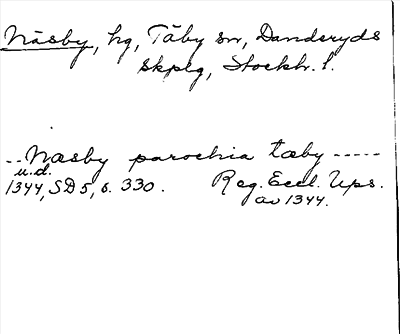 Näsby, hg, Täby sn, Danderyds
skplg, Stockh. l.
.. Næsby parochia tæby -----
u.d.
1344, SD 5, s. 330. Reg. Eccl. Ups.
av 1344.